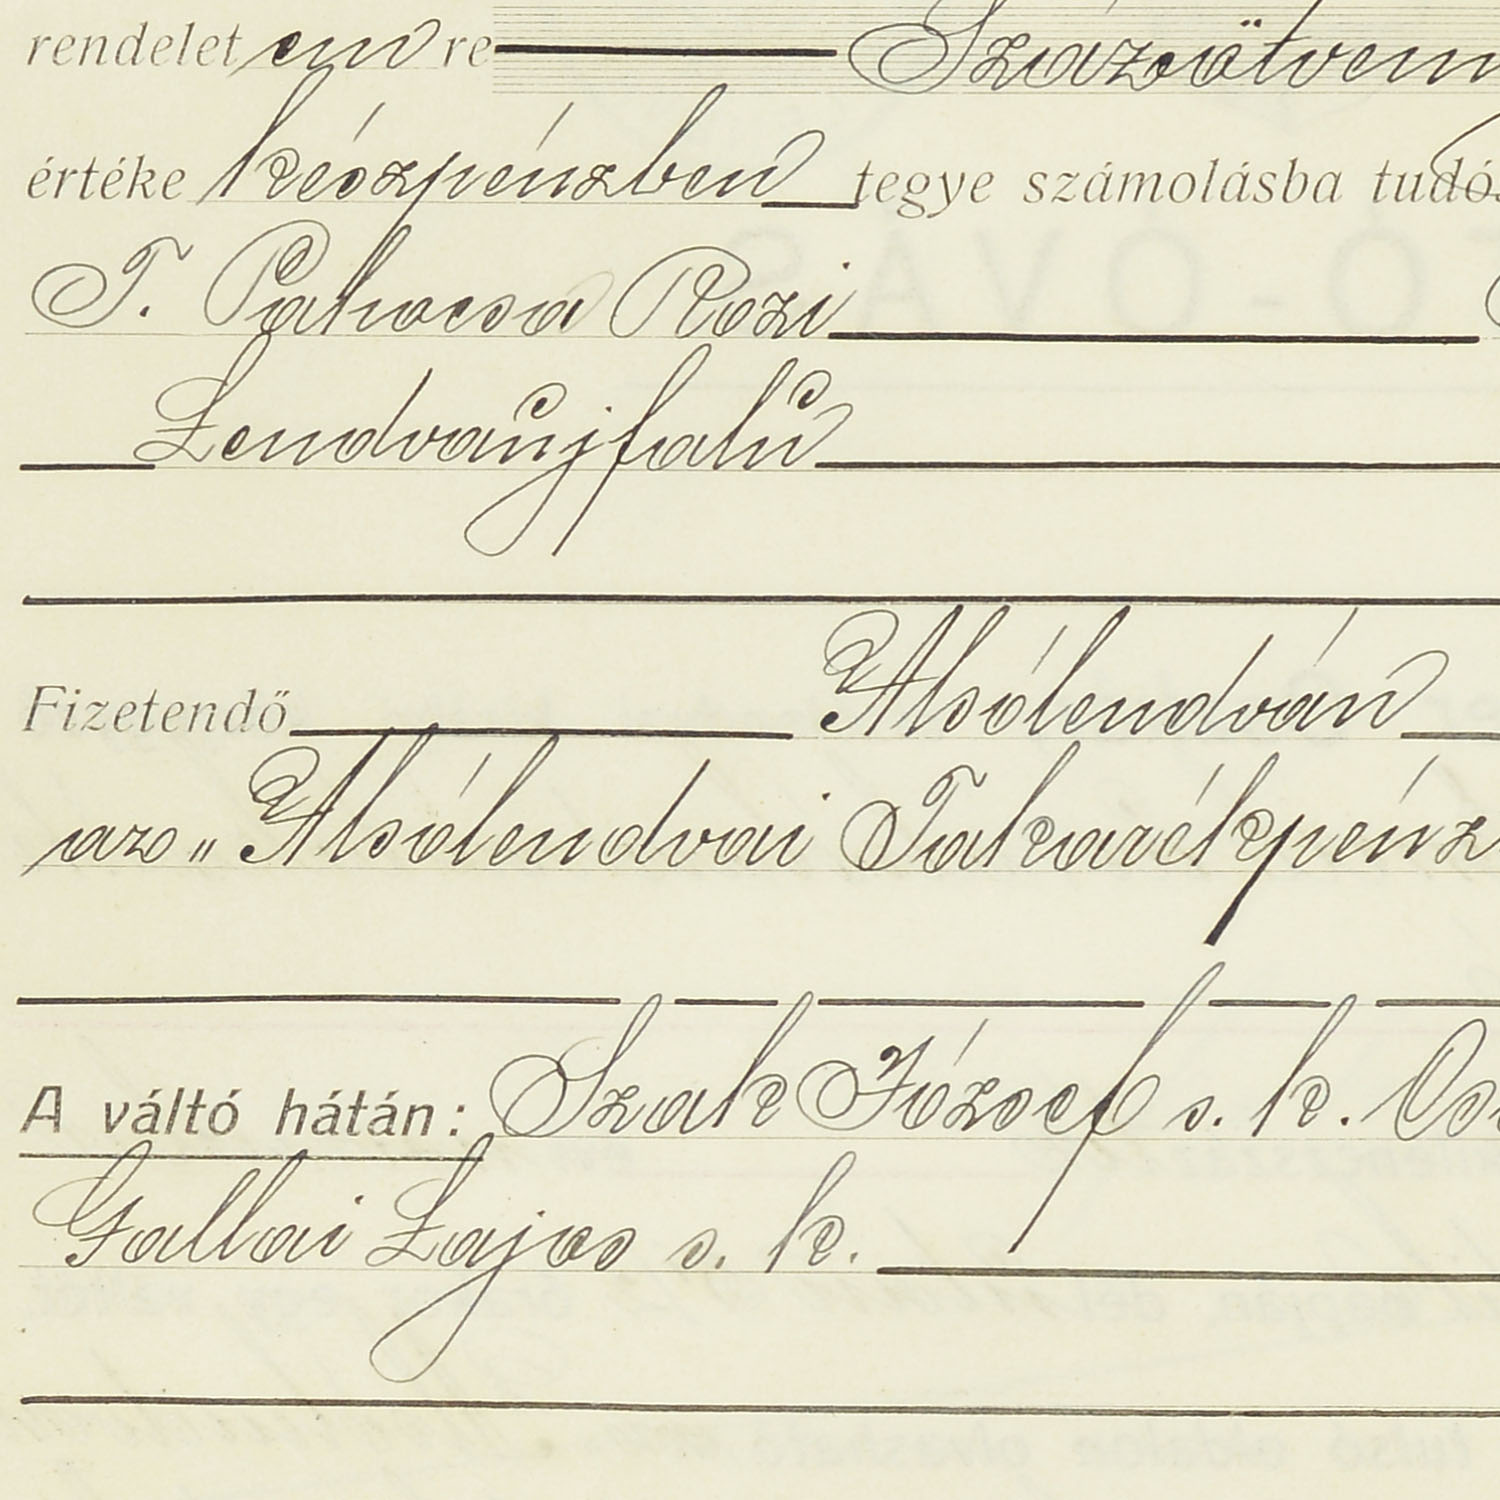 rendelet em re Százötven
értéke készpénzben tegye számolásba
T. Pakocsa Rozi
Lendvaújfalú
Fizetendő Alsólendván
az „Alsólendvai Takarékpénz
A váltó hátán: Szak József s. k.
Gallai Lajos s. k.